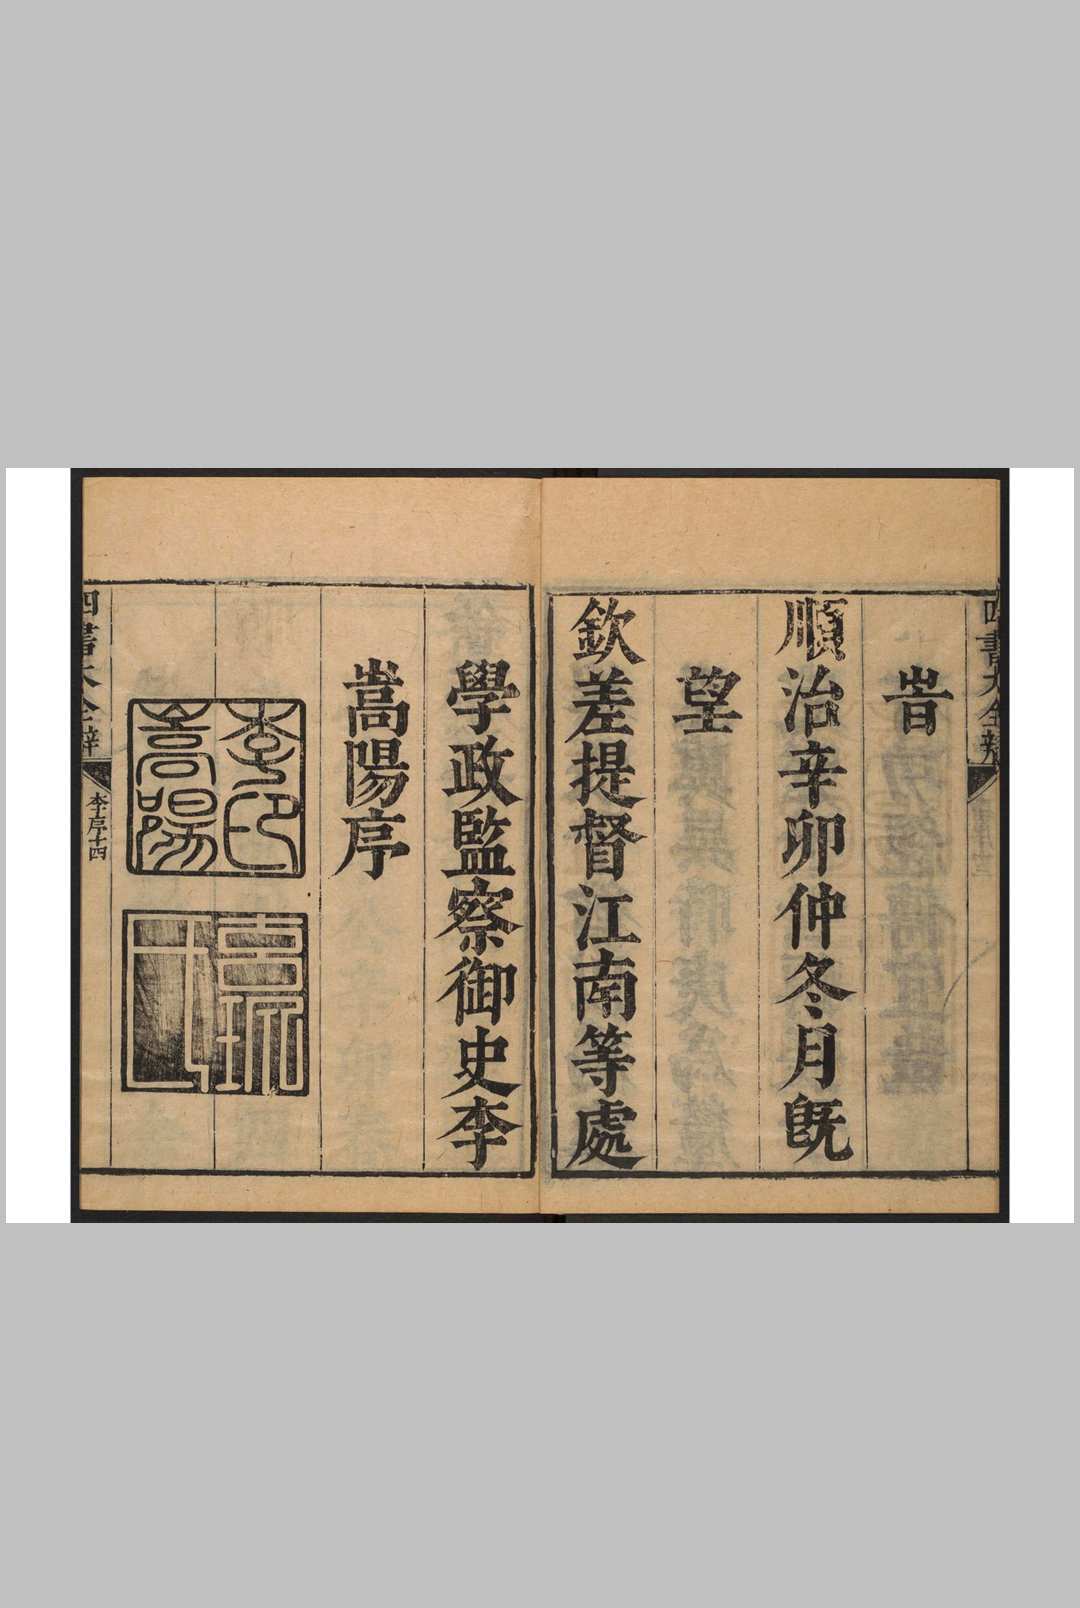 旹
順治辛卯仲冬月旣
望
欽差提督江南等處
學政監察御史李
嵩陽序
李印
嵩陽
四書大全辯
四書大全辯
李序十四